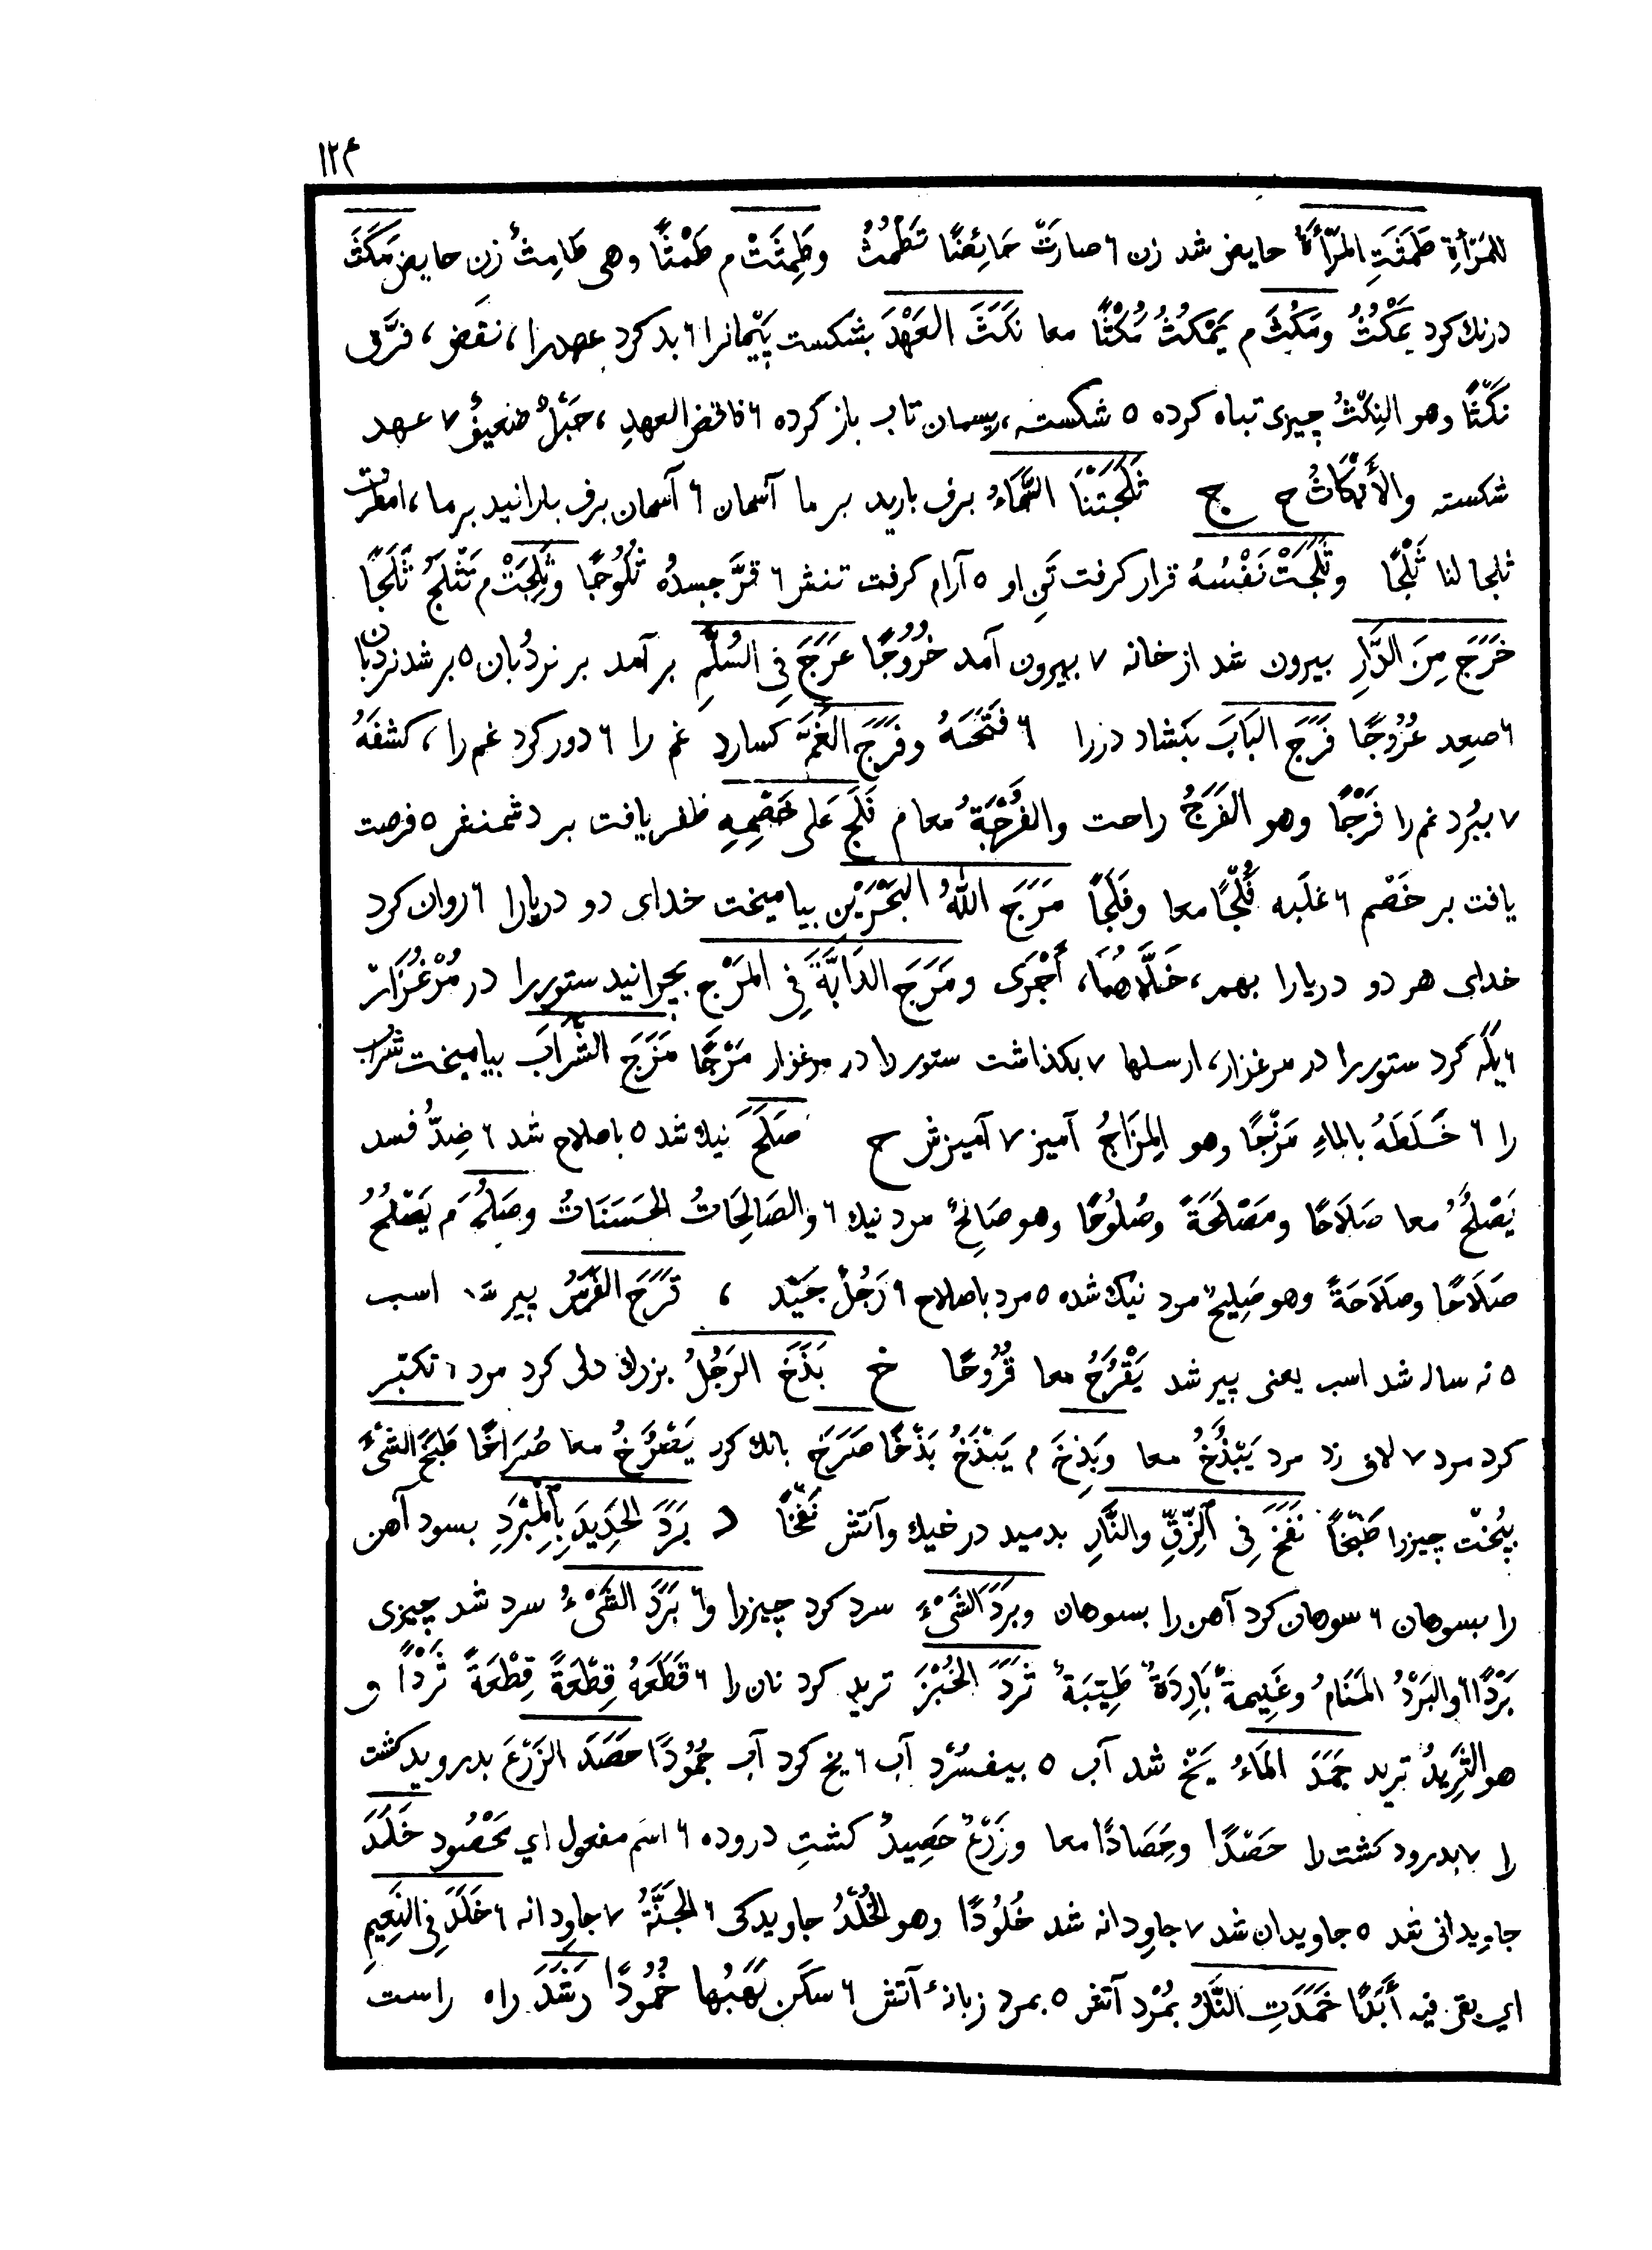 ١٢٤
للمَرْأَةِ طَمَثَتِ المَرْأَةُ حايض شد زن ٦ صارَتْ حَائِضًا تَطْمُثُ وطَمِثَتْ م طَمْثًا وهى طَامِثٌ زن حايض مَكَثَ
درنك كرد يَمْكُثُ ومَكُثَ م يَمْكُثُ مُكْثًا معا نَكَثَ العَهْدَ بشكست پَيْمانرا ٦ بد كرد عهدرا، نقَض، فرَّق
نَكْثًا وهو النِكْثُ چيزى تباه كرده ٥ شكسته، ريسمان تاب باز كرده ٦ ناقض العهدِ، حَبْلٌ ضعيفٌ ٧ عهد
شكسته والأَنْكَاثُ ح ج ثَلَجَتْنَا السَّمَاءُ برف باريد بر ما آسمان ٦ آسمان برف بارانيد برما، امطرت
ثلجا لنا ثَلْجًا وثَلَجَتْ نَفْسُهُ قرار كرفت تَنِ او ٥ آرام كرفت تنش ٦ قرَّ جسدُه ثُلُوجًا وثَلِجَتْ م تَثْلَجُ ثَلَجًا
خَرَجَ مِنَ الدَّارِ بيرون شد از خانه ٧ بيرون آمد خُرُوجًا عَرَجَ فِى السُلَّمِ بر آمد بر نردُبان ٥ بر شد نردبان
٦ صعِد عُرُوجًا فَرَجَ البَابَ بكشاد دررا ٦ فَتَحَهُ وفَرَجَ الغَمَّ كسارد غم را ٦ دور كرد غم را، كشفَهُ
٧ ببُرد غم را فَرْجًا وهو الفَرَجُ راحت والفُرْجَةُ معا م فَلَجَ عَلى خَصْمِهِ ظفر يافت بر دشمنش ٥ فرصت
يافت بر خَصْم ٦ غلَبه فُلْجًا معا وفَلَجًا مَرَجَ اللّٰهُ البَحْرَيْنِ بياميخت خداى دو دريارا ٦ روان كرد
خداى هر دو دريارا بهم، خَلَّاهُمَا، أَجْرَى ومَرَجَ الدَابَّةَ فِى المَرْجِ بچرانيد ستوررا در مُرْغُزَار
٦ يَلَه كرد ستوررا در مرغزار، ارسلها ٧ بكذاشت ستور را در مرغزار مَرْجًا مَزَجَ الشَّرَابَ بياميخت شراب
را ٦ خَلَطَهُ بالماءِ مَزْجًا وهو المِزَاجُ آميز ٧ آميزش ح صَلَحَ نيك شد ٥ باصلاح شد ٦ ضِدُّ فسد
يَصْلُحُ معا صَلَاحًا ومَصْلَحَةً وصُلُوحًا وهو صَالِحٌ مرد نيك ٦ والصَالِحَاتُ الحَسَنَاتُ وصَلُحَ م يَصْلُحُ
صَلَاحًا وصَلَاحَةً وهو صَلِيحٌ مرد نيك شده ٥ مرد باصلاح ٦ رَجُلٌ جَيّد ، قَرَحَ الفَرَسُ پير شد اسب
٥ نه ساله شد اسب يعنى پير شد يَقْرَحُ معا قُرُوحًا خ بَذَخَ الرَجُلُ بزرك دلى كرد مرد ٦ تكبّر
كرد مرد ٧ لاف زد مرد يَبْذُخُ معا وبَذِخَ م يَبْذَخُ بَذْخًا صَرَخَ بانك كرد يَصْرُخُ معا صُرَاخًا طَبَخَ الشَىْءَ
پُخت چيزرا طَبْخًا نَفَخَ فِى الزِّقِّ والنَّارِ بدميد در خيك وآتش نَفْخًا د بَرَدَ الحَدِيدَ بِالمِبْرَدِ بسود آهن
را بسوهان ٦ سوهان كرد آهن را بسوهان وبَرَدَ الشَىْءَ سرد كرد چيزرا و٦ بَرَدَ الشَىْءُ سرد شد چيزى
بَرْدًا ٦ والبَرْدُ المَنَامُ وغَنِيمةٌ بَارِدَةٌ طَيِّبَةٌ ثَرَدَ الخُبْزَ تريد كرد نان را ٦ قَطَعَهُ قِطْعَةً قِطْعَةً ثَرْدًا و
هو الثَرِيدُ تريد جَمَدَ المَاءُ يَخْ شد آب ٥ بيفسُرْد آب ٦ يخ كرد آب جُمُودًا حَصَدَ الزَرْعَ بدرويد كشت
را ٧ بدرود كشت را حَصْدًا وحَصَادًا معا وزَرْعٌ حَصِيدٌ كشتِ دروده ٦ اسم مفعول اي مَحْصُود خَلَدَ
جاويدانى شد ٥ جاويدان شد ٧ جاودانه شد خُلُودًا وهو الخُلْدُ جاويدكى ٦ الجَنَّةُ ٧ جاودانه ٦ خَلَدَ فِى النَعِيمِ
اي بقى فيه أَبَدًا خَمَدَتِ النَّارُ بمُرْد آتش ٥ بمرد زبانهٔ آتش ٦ سكَن لَهَبُها خُمُودًا رَشَدَ راه راست